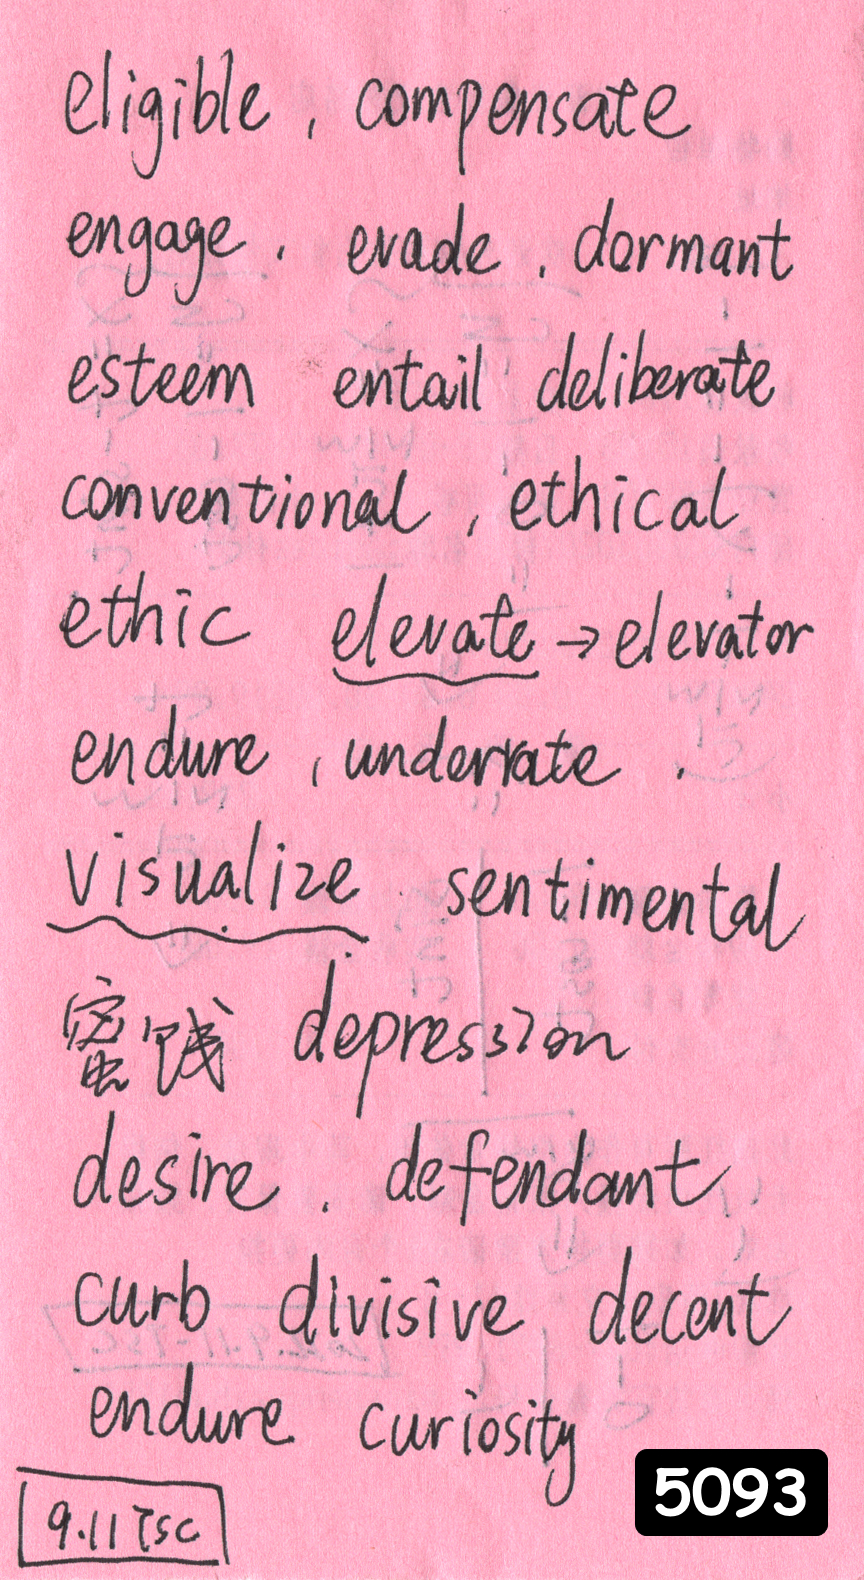 eligible , compensate
engage . evade . dormant
esteem entail deliberate
conventional , ethical
ethic elevate → elevator
endure , underrate .
visualize . sentimental
蜜饯 depression
desire . defendant
curb divisive decent
endure curiosity
9.11 TSC
5093